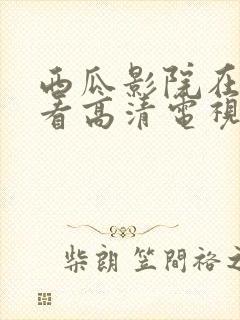 西瓜影院在
看高清電視
柴朗 笠間裕之